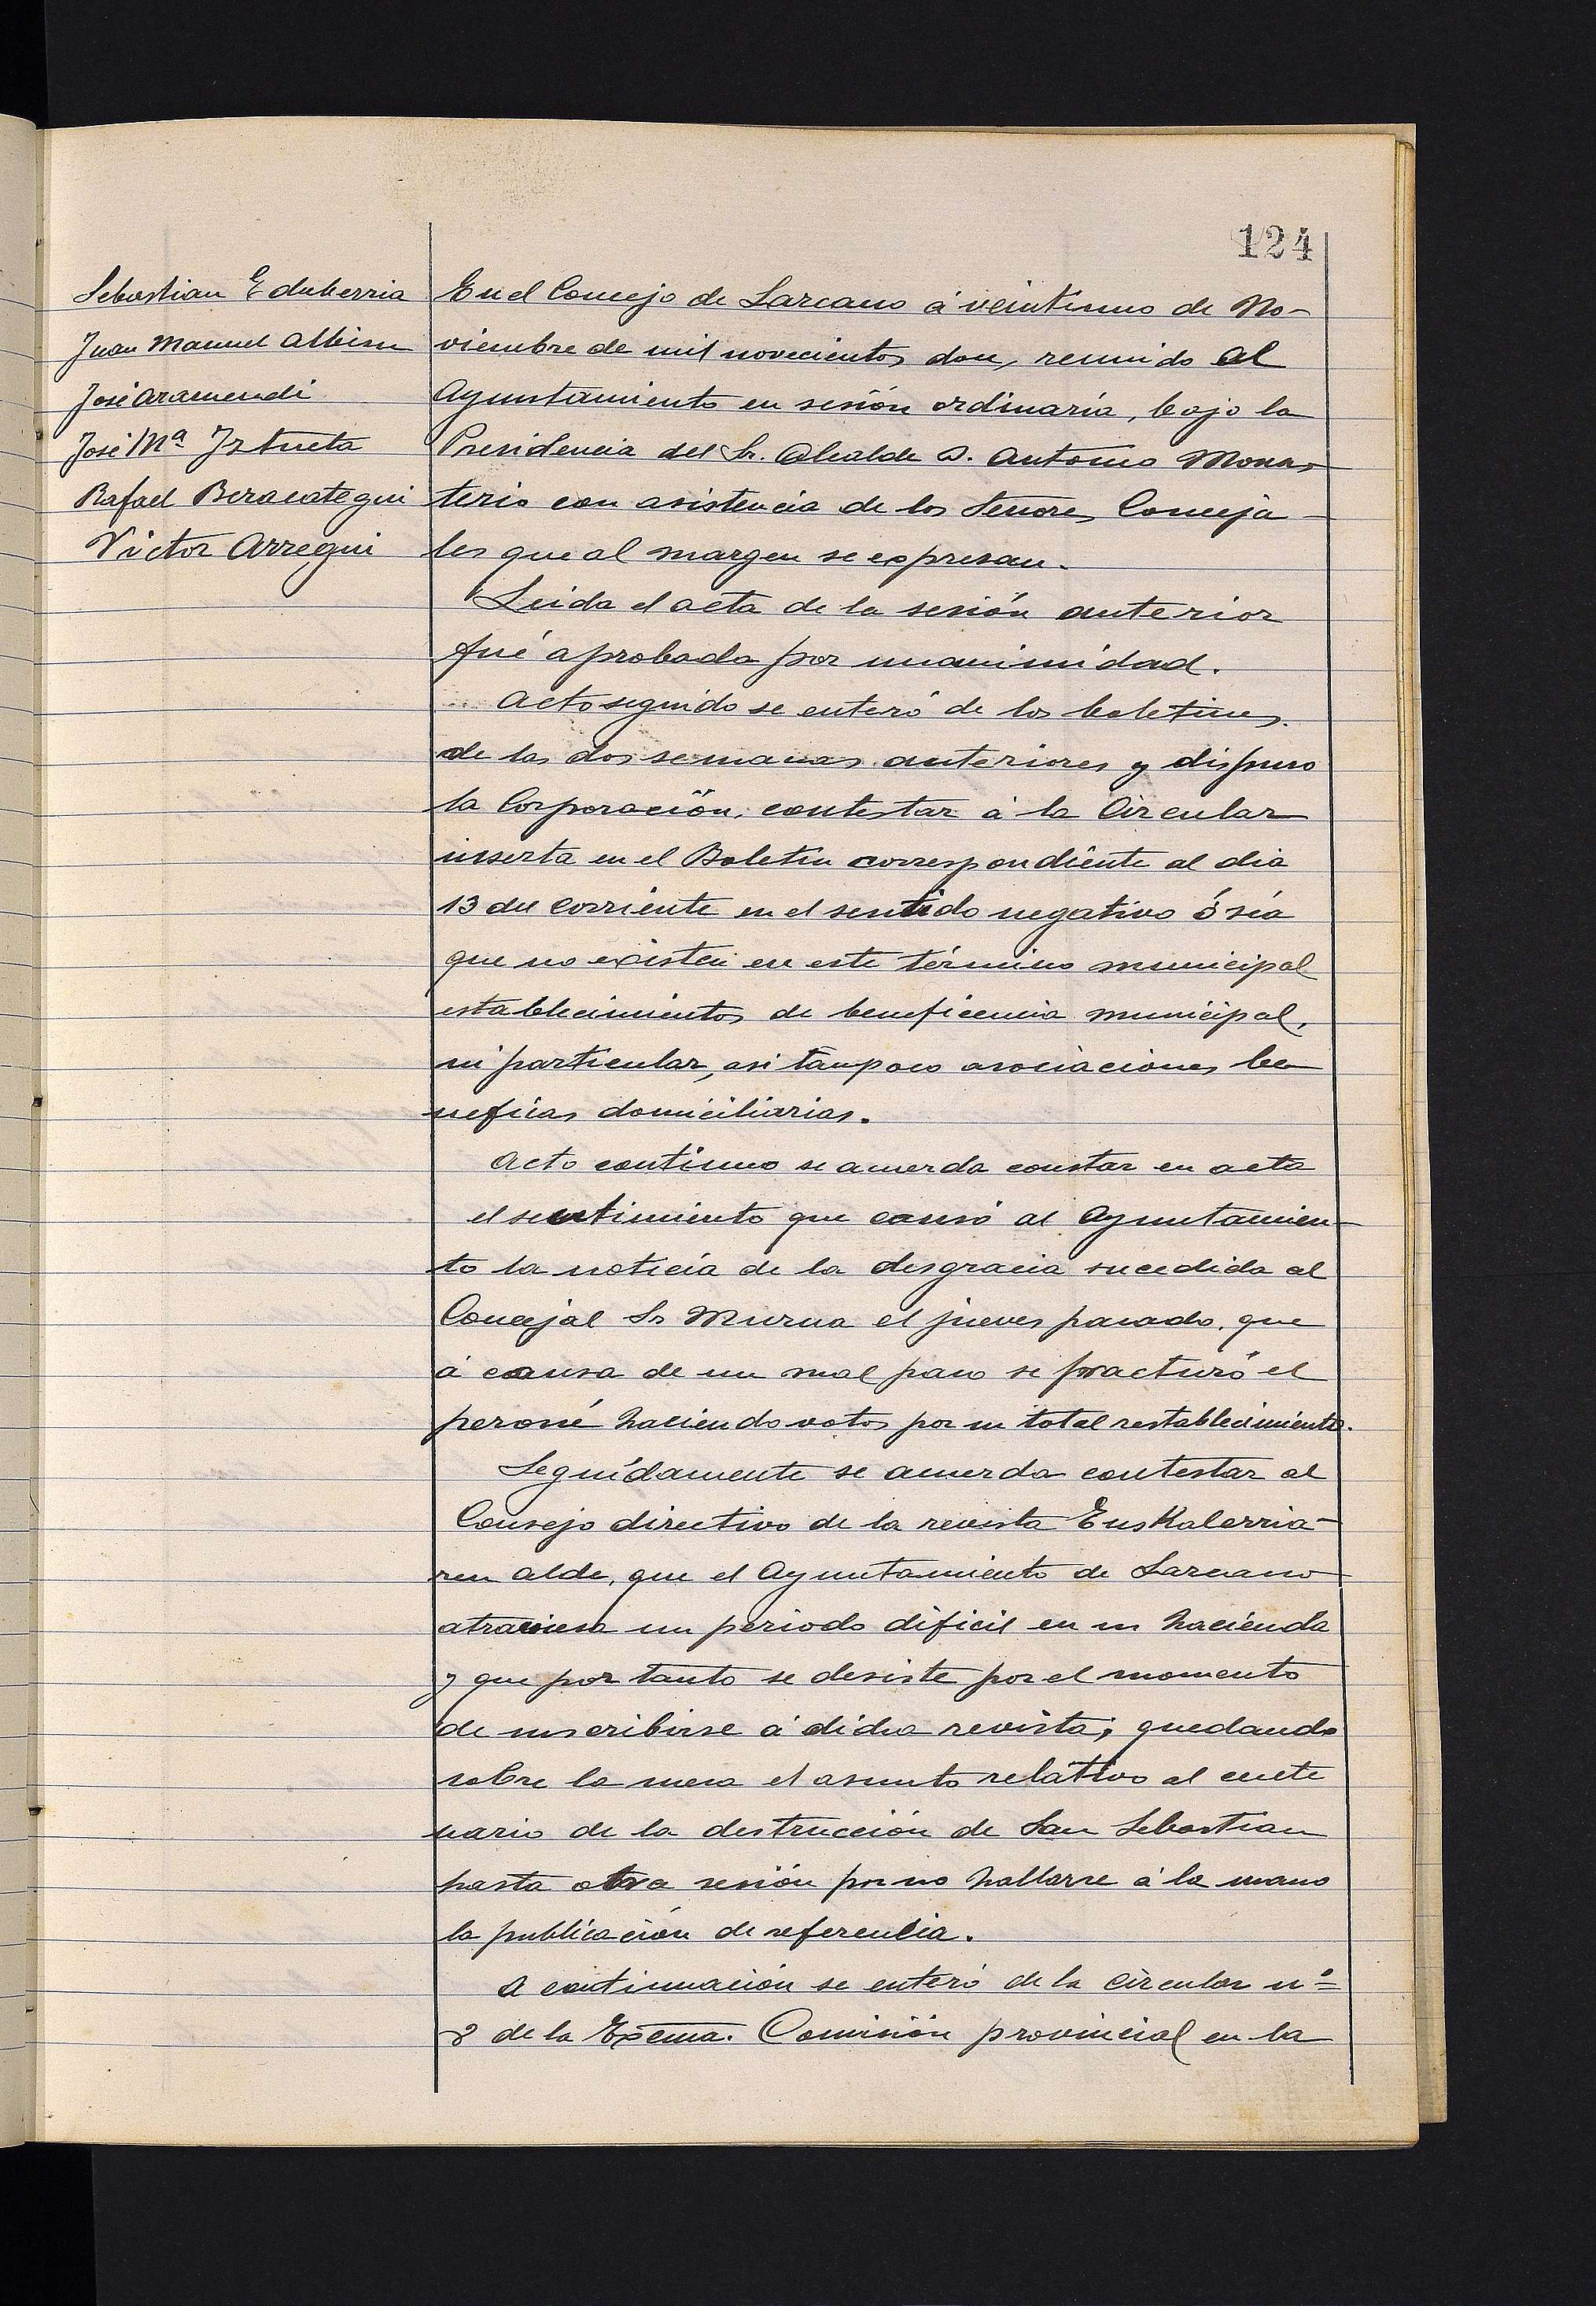 124
Sebastian Echeberria
Juan Manuel Albisu
José Aramendi
José Mª Iztueta
Rafael Beracategui
Victor Arregui
En el Concejo de Lazcano á veintiuno de No-
viembre de mil novecientos doce, reunido el
Ayuntamiento en sesión ordinaria, bajo la
Presidencia del Sr. Alcalde D. Antonio Monas-
terio con asistencia de los Señores Conceja-
les que al margen se expresan.
Leida el acta de la sesión anterior
fué aprobada por unanimidad.
Acto seguido se enteró de los boletines
de las dos semanas anteriores y dispuso
la Corporación, contestar á la Circular
inserta en el Boletin correspondiente al dia
13 del corriente en el sentido negativo ó séa
que no existen en este término municipal
establecimientos de beneficencia municipal,
ni particular, asi tampoco asociaciones be
neficas domiciliarias.
Acto continuo se acuerda constar en acta
el sentimiento que causó al Ayuntamien-
to la noticia de la desgracia sucedida al
Concejal Sr Murua el jueves pasado, que
á causa de un mal paso se fracturó el
peroné haciendo votos por su total restablecimiento.
Seguidamente se acuerda contestar al
Consejo directivo de la revista Euskalerria-
ren alde, que el Ayuntamiento de Lazcano
atraviesa un periodo dificil en su hacienda
y que por tanto se desiste por el momento
de suscribirse á dicha revista; quedando
sobre la mesa el asunto relativo al cente
nario de la destrucción de San Sebastian
hasta otra sesión por no hallarse á la mano
la publicación de referencia.
A continuación se enteró de la circular nº
8 de la Excma. Comisión provincial en la